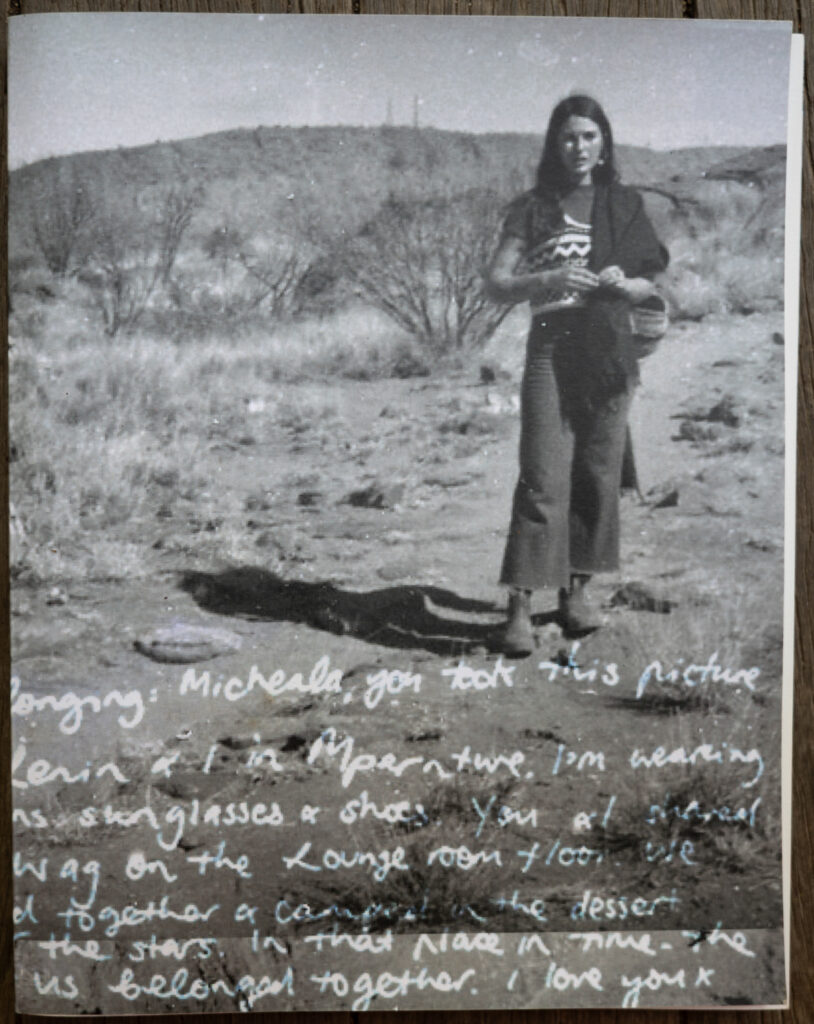 longing: Micheala, you took this picture
Kevin & I in Mparntwe. I'm wearing
ns sunglasses & shoes. You & I shared
wag on the Lounge room floor. We
d together & camped in the dessert
the stars. In that place in time - the
us belonged together. I love you x